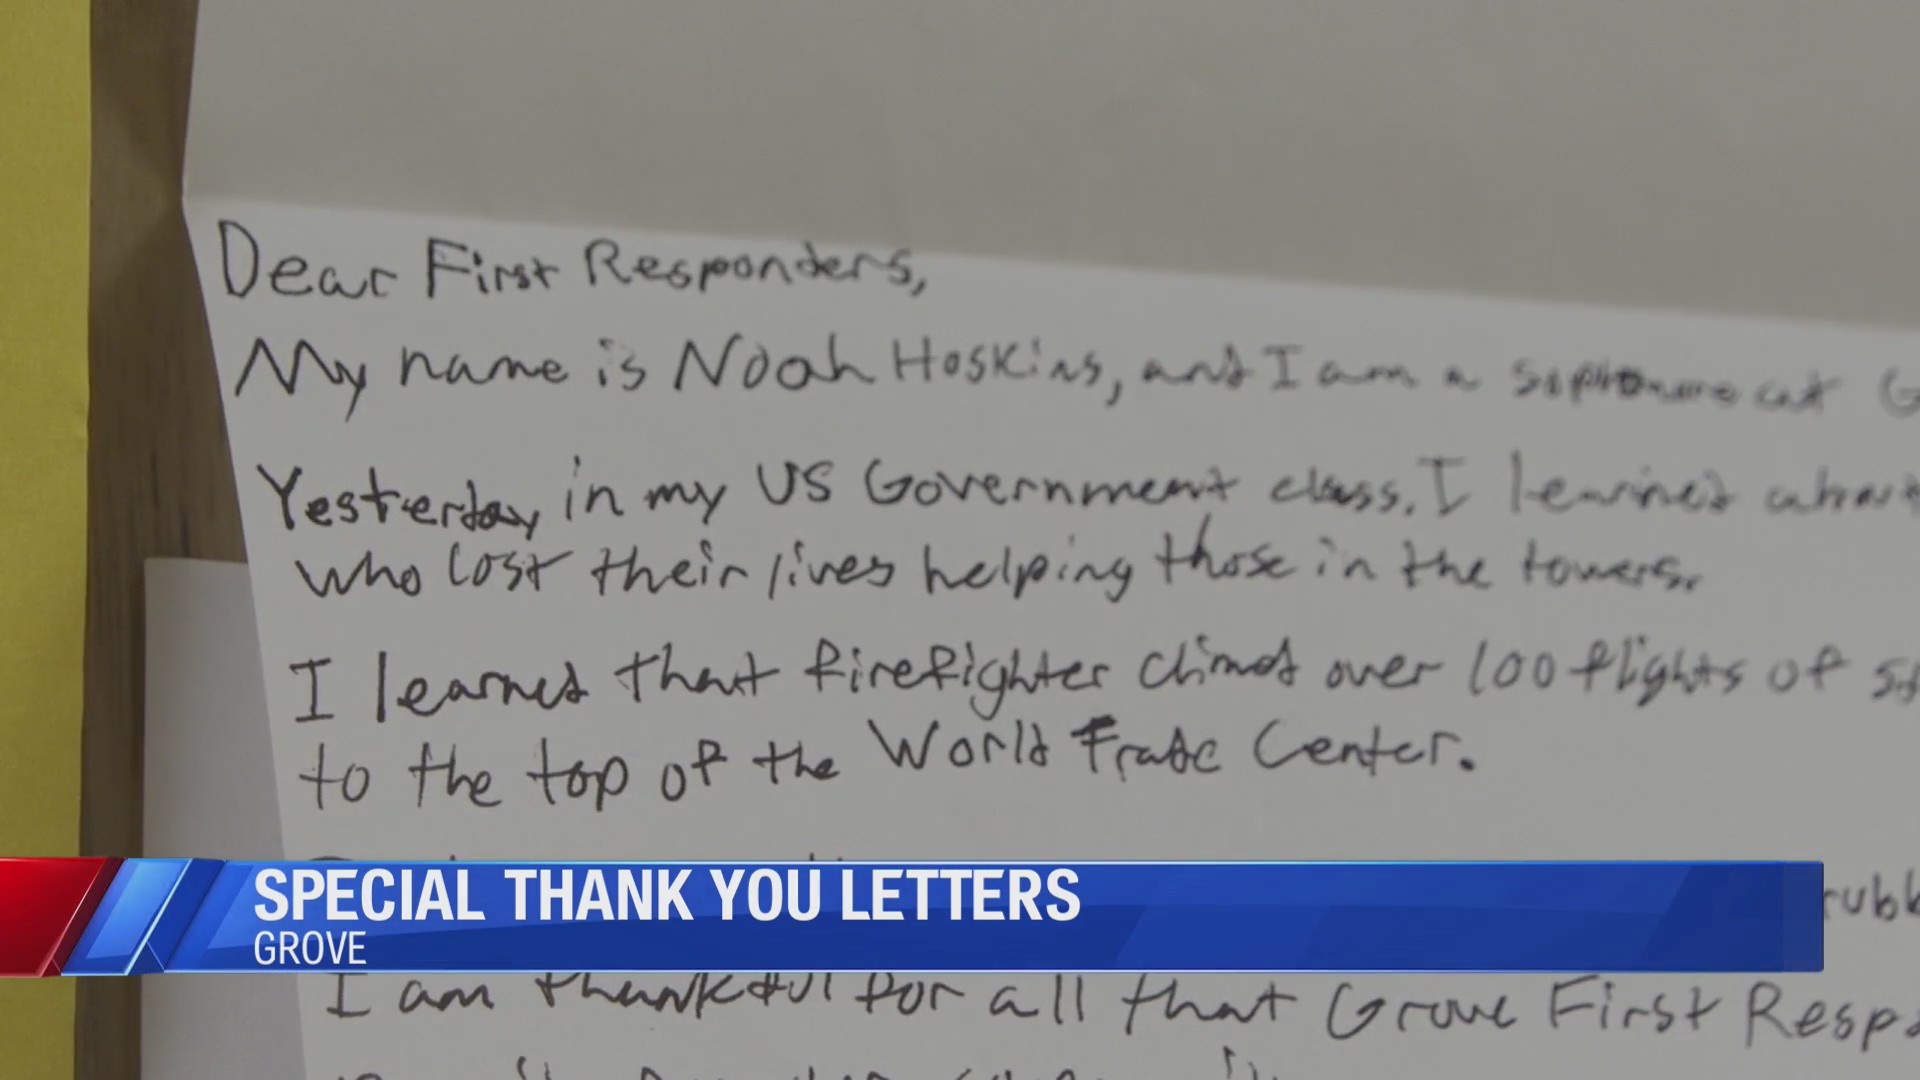 Dear First Responders,
My name is Noah Hoskins, and I am a sophomore at G
Yesterday in my US Government class, I learned about
who lost their lives helping those in the towers.
I learned that firefighter climed over 100 flights of st
to the top of the World Trade Center.
rubb
SPECIAL THANK YOU LETTERS
GROVE
I am thankful for all that Grove First Respo